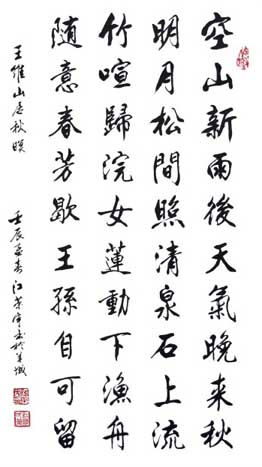 空山新雨後天氣晚来秋
明月松間照清泉石上流
竹喧歸浣女蓮動下漁舟
随意春芳歇王孫自可留
王維山居秋暝
壬辰孟春江荣书於羊城